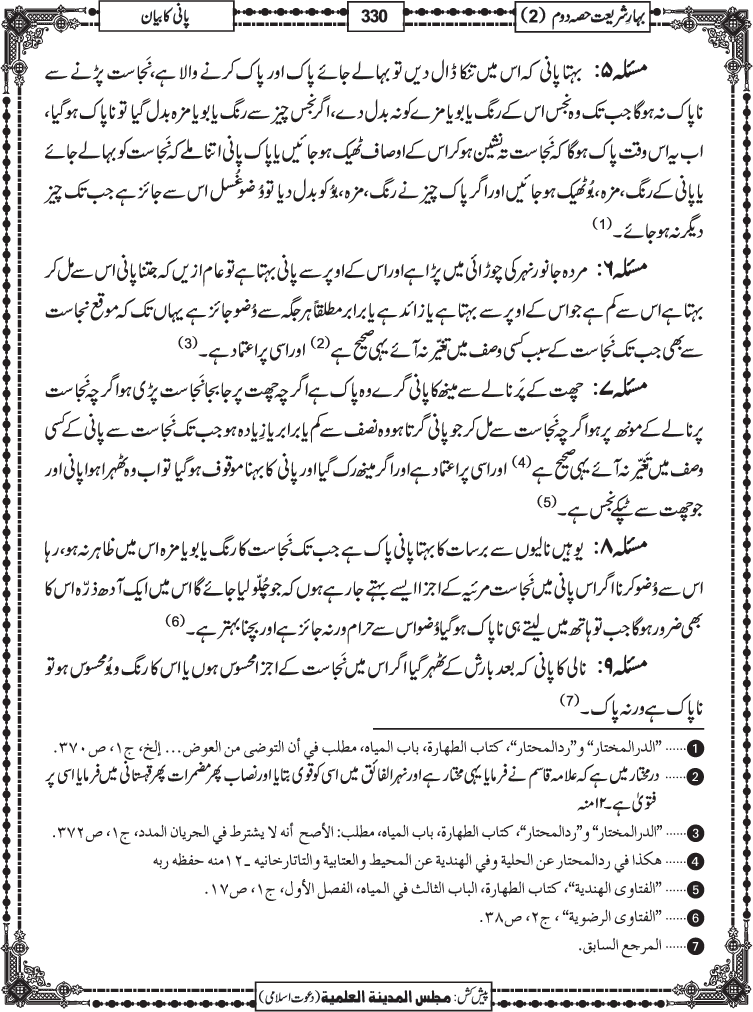 بہارِشریعت حصہ دوم (2)
330
پانی کا بیان
مسئلہ ۵: بہتا پانی کہ اس میں تنکا ڈال دیں تو بہا لے جائے پاک اور پاک کرنے والا ہے، نَجاست پڑنے سے
ناپاک نہ ہوگا جب تک وہ نجس اس کے رنگ یا بو یا مزے کو نہ بدل دے، اگر نجس چیز سے رنگ یا بو یا مزہ بدل گیا تو ناپاک ہوگیا،
اب یہ اس وقت پاک ہوگا کہ نَجاست تہ نشین ہوکر اس کے اوصاف ٹھیک ہو جائیں یا پاک پانی اتنا ملے کہ نَجاست کو بہا لے جائے
یا پانی کے رنگ، مزہ، بُو ٹھیک ہو جائیں اور اگر پاک چیز نے رنگ، مزہ، بُو کو بدل دیا تو وُضو غُسل اس سے جائز ہے جب تک چیز
دیگر نہ ہو جائے۔ (1)
مسئلہ ۶: مردہ جانور نہر کی چوڑائی میں پڑا ہے اور اس کے اوپر سے پانی بہتا ہے تو عام ازیں کہ جتنا پانی اس سے مل کر
بہتا ہے اس سے کم ہے جو اس کے اوپر سے بہتا ہے یا زائد ہے یا برابر مطلقاً ہر جگہ سے وُضو جائز ہے یہاں تک کہ موقع نجاست
سے بھی جب تک نَجاست کے سبب کسی وصف میں تغیّر نہ آئے یہی صحیح ہے (2) اور اسی پر اعتماد ہے۔ (3)
مسئلہ ۷: چھت کے پَرنالے سے مینھ کا پانی گرے وہ پاک ہے اگرچہ چھت پر جا بجا نَجاست پڑی ہو اگرچہ نَجاست
پرنالے کے مونھ پر ہو اگرچہ نَجاست سے مل کر جو پانی گرتا ہو وہ نصف سے کم یا برابر یا زِیادہ ہو جب تک نَجاست سے پانی کے کسی
وصف میں تَغَیّر نہ آئے یہی صحیح ہے (4) اور اسی پر اعتماد ہے اور اگر مینھ رک گیا اور پانی کا بہنا موقوف ہوگیا تو اب وہ ٹھہرا ہوا پانی اور
جو چھت سے ٹپکے نجس ہے۔ (5)
مسئلہ ۸: یوہیں نالیوں سے برسات کا بہتا پانی پاک ہے جب تک نَجاست کا رنگ یا بو یا مزہ اس میں ظاہر نہ ہو، رہا
اس سے وُضو کرنا اگر اس پانی میں نَجاست مرئیہ کے اجزا ایسے بہتے جارہے ہوں کہ جو چُلّو لیا جائے گا اس میں ایک آدھ ذرّہ اس کا
بھی ضرور ہوگا جب تو ہاتھ میں لیتے ہی ناپاک ہوگیا وُضو اس سے حرام ورنہ جائز ہے اور بچنا بہتر ہے۔ (6)
مسئلہ ۹: نالی کا پانی کہ بعد بارش کے ٹھہر گیا اگر اس میں نَجاست کے اجزا محسوس ہوں یا اس کا رنگ و بُو محسوس ہو تو
ناپاک ہے ورنہ پاک۔ (7)
1 ...... "الدرالمختار" و"ردالمحتار"، کتاب الطهارة، باب المیاه، مطلب في أن التوضی من العوض... إلخ، ج۱، ص۳۷۰.
2 ...... درمختار میں ہے کہ علامہ قاسم نے فرمایا یہی مختار ہے اور نہر الفائق میں اسی کو قوی بتایا اور نصاب پھر مضمرات پھر قہستانی میں فرمایا اسی پر
فتویٰ ہے۔۱۲منہ
3 ...... "الدرالمختار" و"ردالمحتار"، کتاب الطهارة، باب المیاه، مطلب: الأصح أنه لا یشترط في الجریان المدد، ج۱، ص۳۷۲.
4 ...... هکذا في ردالمحتار عن الحلیة وفي الهندیة عن المحیط والعتابیة والتاتارخانیه ـ۱۲منه حفظه ربه
5 ...... "الفتاوی الهندیة"، کتاب الطهارة، الباب الثالث في المیاه، الفصل الأول، ج۱، ص۱۷.
6 ...... "الفتاوی الرضویة"، ج۲، ص۳۸.
7 ...... المرجع السابق.
پیش کش: مجلس المدينة العلمية (دعوت اسلامی)